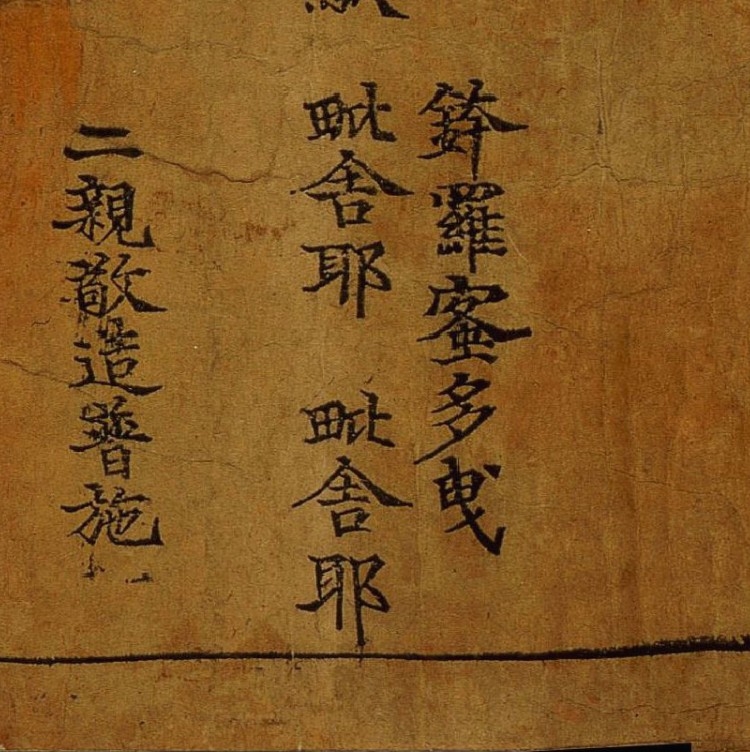 鉢羅蜜多曳
毗舍耶 毗舍耶
二親敬造普施